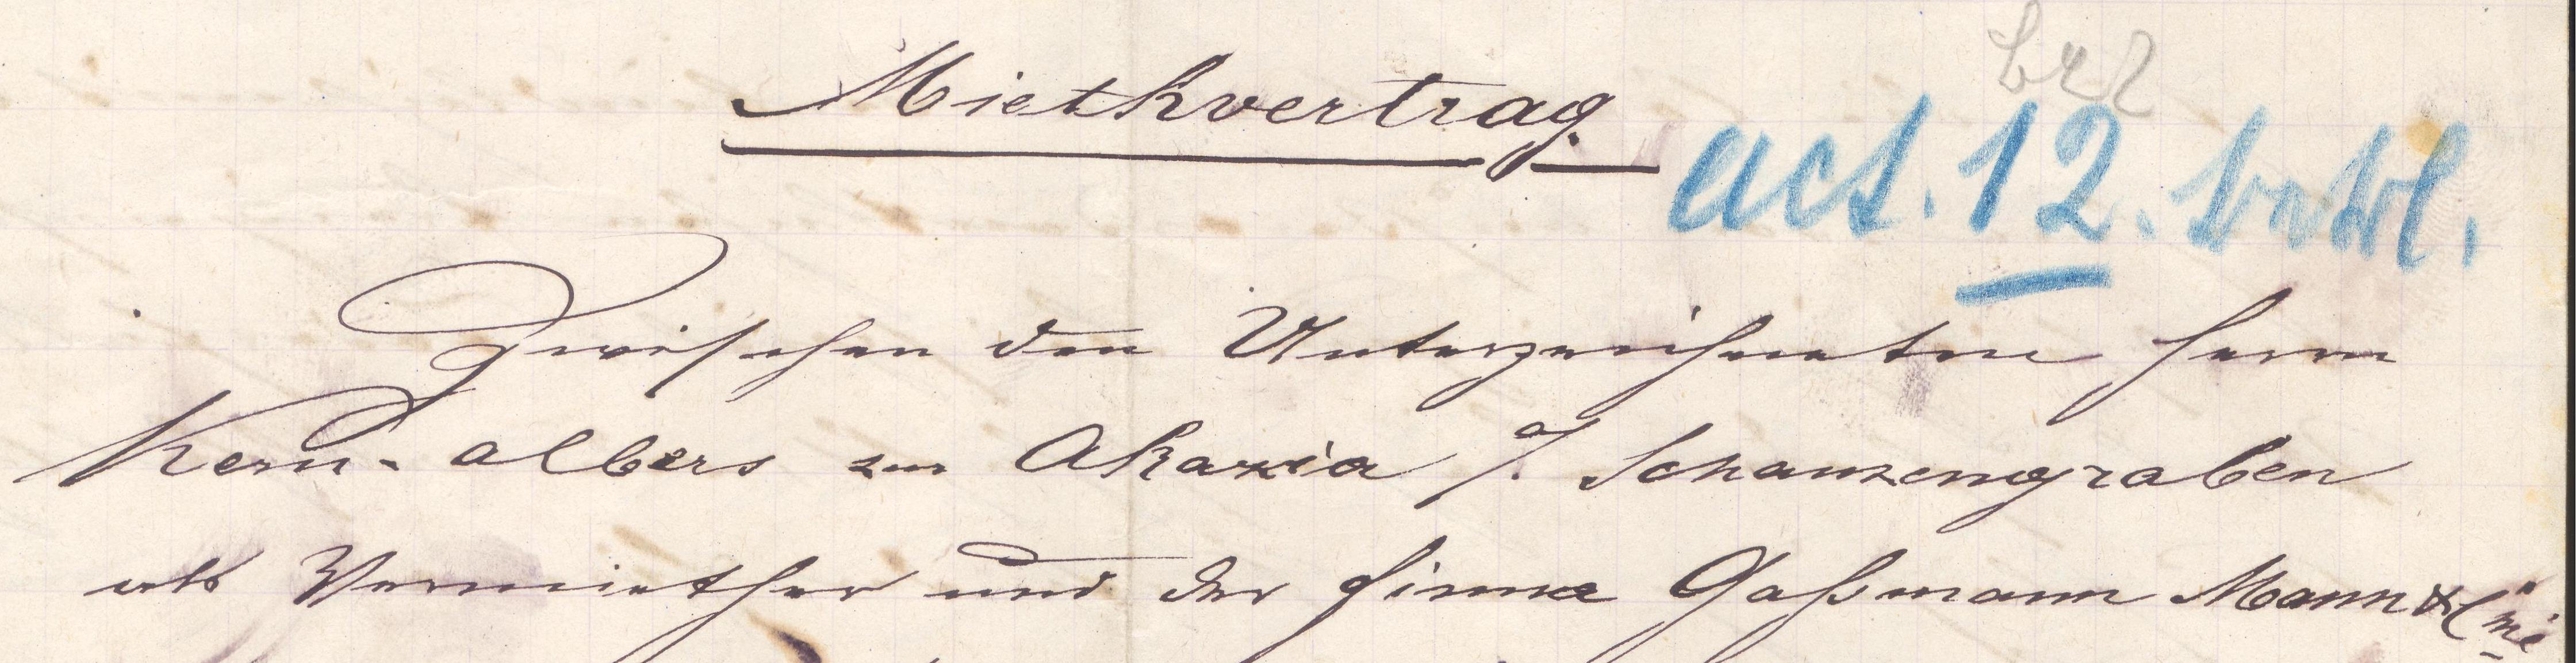 Miethvertrag
act. 12.
Zwischen den Unterzeichneten Herrn
Kern-Albers zur Akazia a/. Schanzengraben
als Vermiether und der Firma Gaßmann Mann & Cie